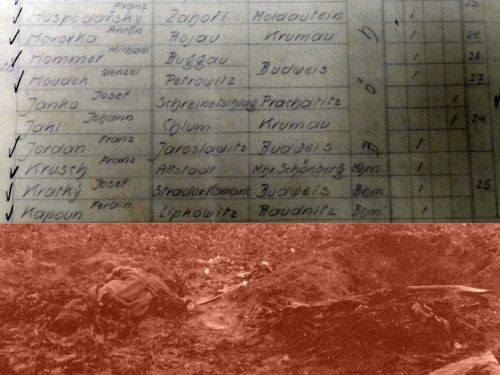 Hospodarsky Franz Zahoři Moldautein 1 25.
Hovorka Anton Rojau Krumau 1 24.
Hommer Michael Buggau Budweis 1 28.
Houdek Wenzel Petrowitz 1 27.
Janko Josef Schreinetschlag Prachatitz 1
Jakl Johann Chlum Krumau 1 24.
Jordan Franz Jaroslawitz Budweis B 1
Krusch Franz Altstadt Mhr. Schönberg Mhrn 1
Kratký Josef Budweis Bhm. 1 25.
Kapoun Ferdin. Lipkowitz Baudnitz Bhm. 1